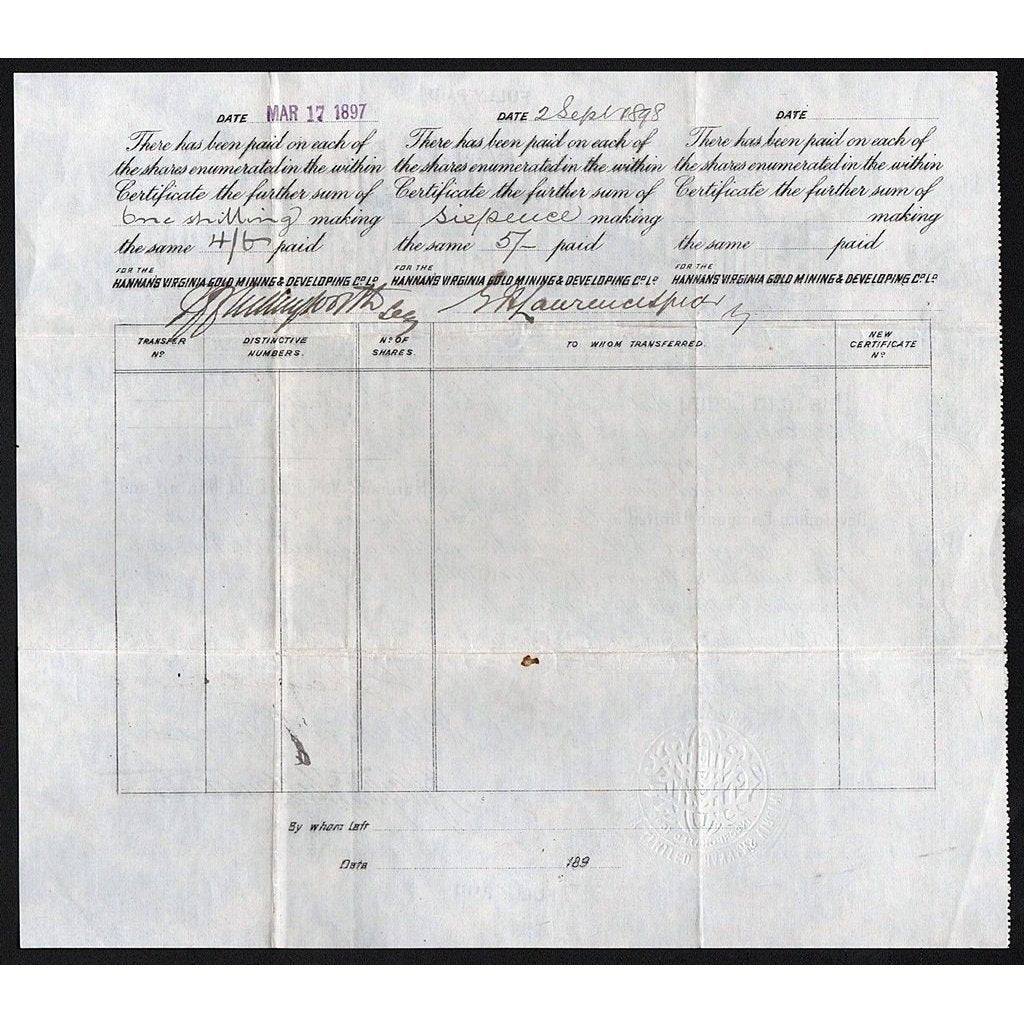 DATE MAR 17 1897
There has been paid on each of
the shares enumerated in the within
Certificate the further sum of
One shilling making
the same 4/6 paid
FOR THE
HANNAN'S VIRGINIA GOLD MINING & DEVELOPING Co Ld
Secy
DATE 2 Sept 1898
There has been paid on each of
the shares enumerated in the within
Certificate the further sum of
Sixpence making
the same 5/- paid
FOR THE
HANNAN'S VIRGINIA GOLD MINING & DEVELOPING Co Ld
DATE
There has been paid on each of
the shares enumerated in the within
Certificate the further sum of
making
the same paid
FOR THE
HANNAN'S VIRGINIA GOLD MINING & DEVELOPING Co Ld
TRANSFER No
DISTINCTIVE NUMBERS.
No OF SHARES.
TO WHOM TRANSFERRED.
NEW CERTIFICATE No
By whom left
Date 189